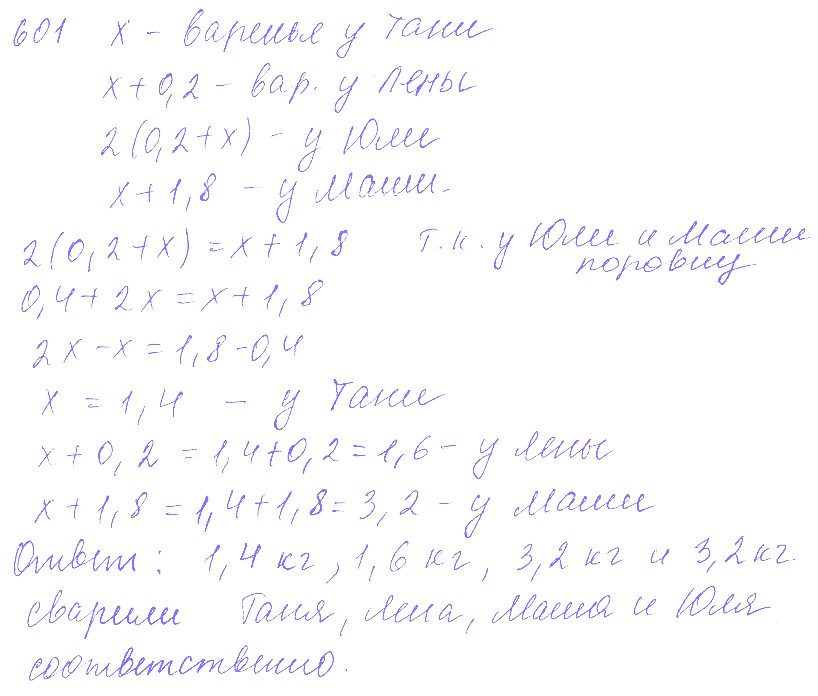 601 х - варенья у Тани
х + 0,2 - вар. у Лены
2(0,2+х) - у Юли
х + 1,8 - у Маши.
2(0,2+х) = х + 1,8 т.к. у Юли и Маши
поровну
0,4 + 2х = х + 1,8
2х - х = 1,8 - 0,4
х = 1,4 - у Тани
х + 0,2 = 1,4+0,2 = 1,6 - у Лены
х + 1,8 = 1,4+1,8 = 3,2 - у Маши
Ответ: 1,4 кг, 1,6 кг, 3,2 кг и 3,2 кг.
сварили Таня, Лена, Маша и Юля
соответственно.